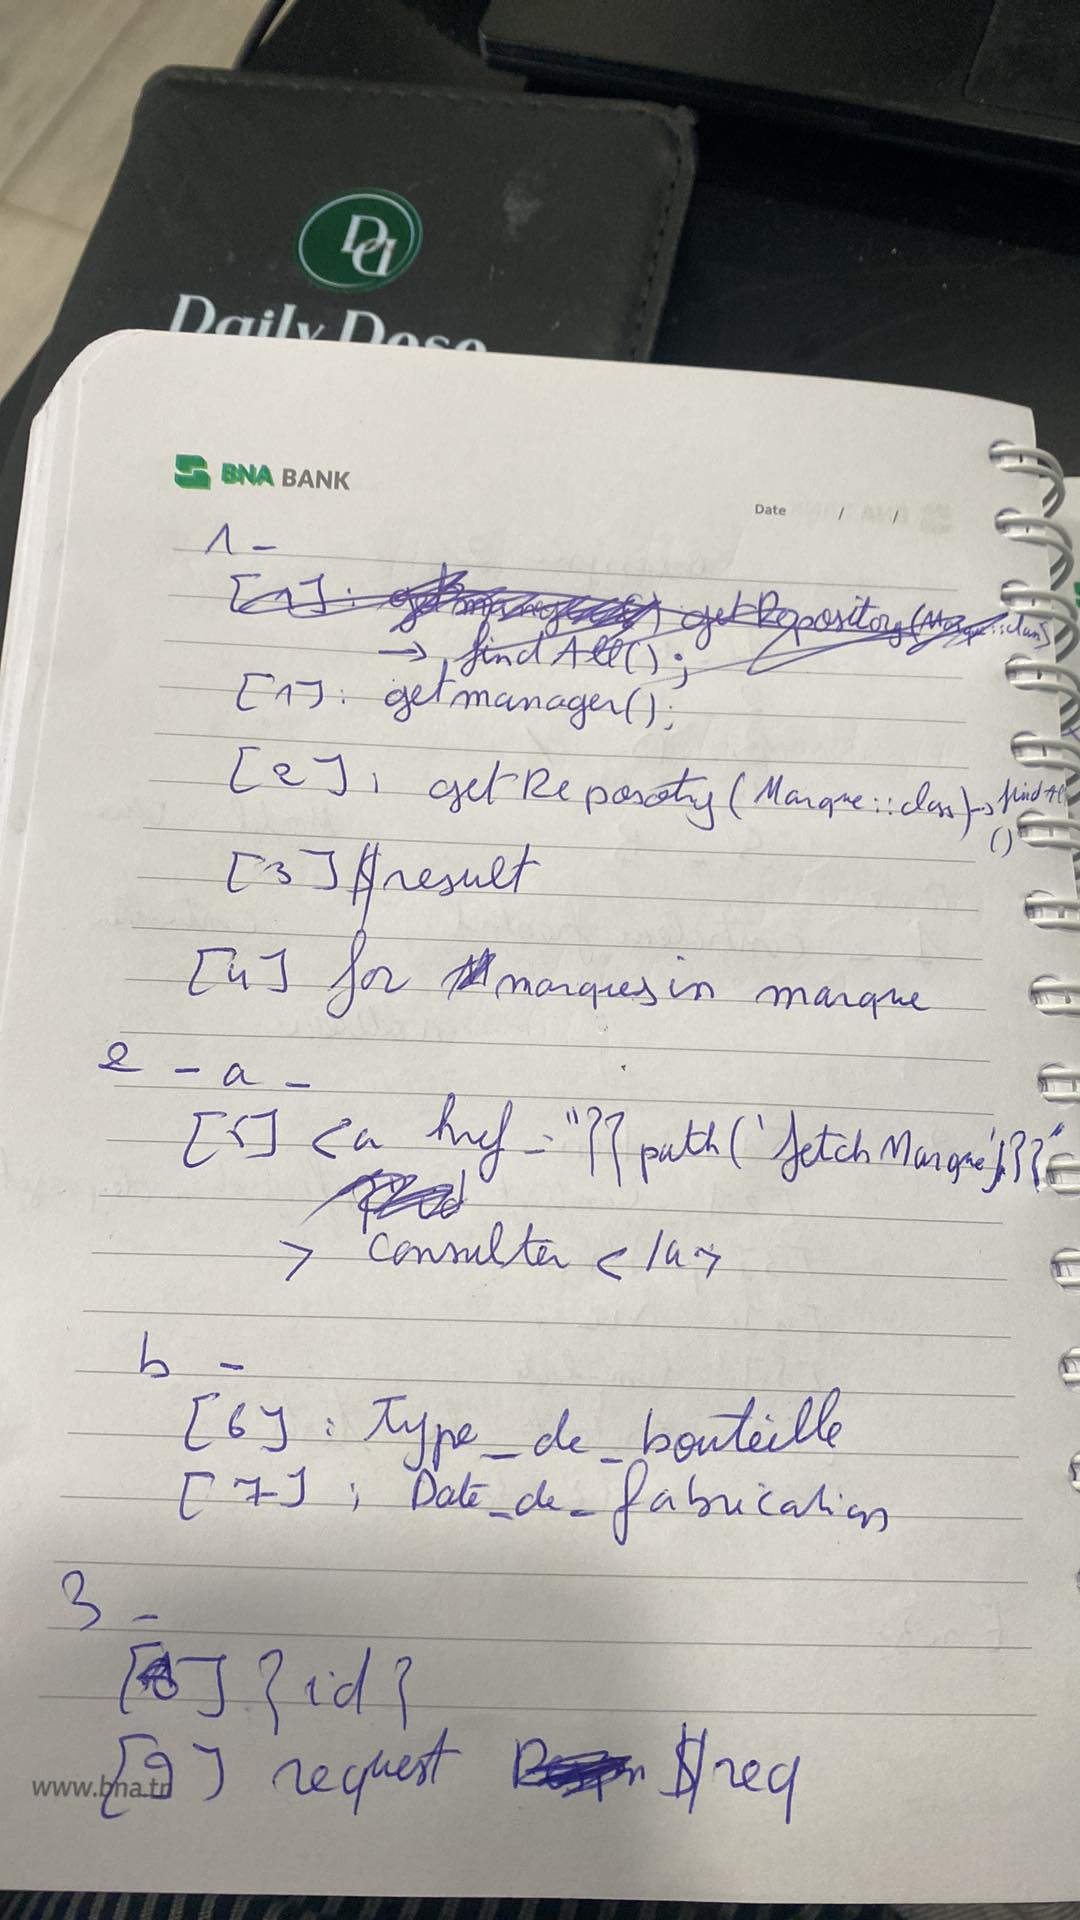 DD
Daily Dose
BNA BANK
Date / /
1 -
[1]: getRepository(Marque::class)
→ findAll();
[1]: getmanager();
[2]: getReposotry(Marque::class)→findAll
()
[3] $result
[4] for marques in marque
2 - a -
[5] <a href="{{path('fetchMarque')}}"
> Consulter </a>
b -
[6] : Type_de_bouteille
[7] : Date_de_fabrication
3 -
[8] {id}
[9] request $req
www.bna.tn